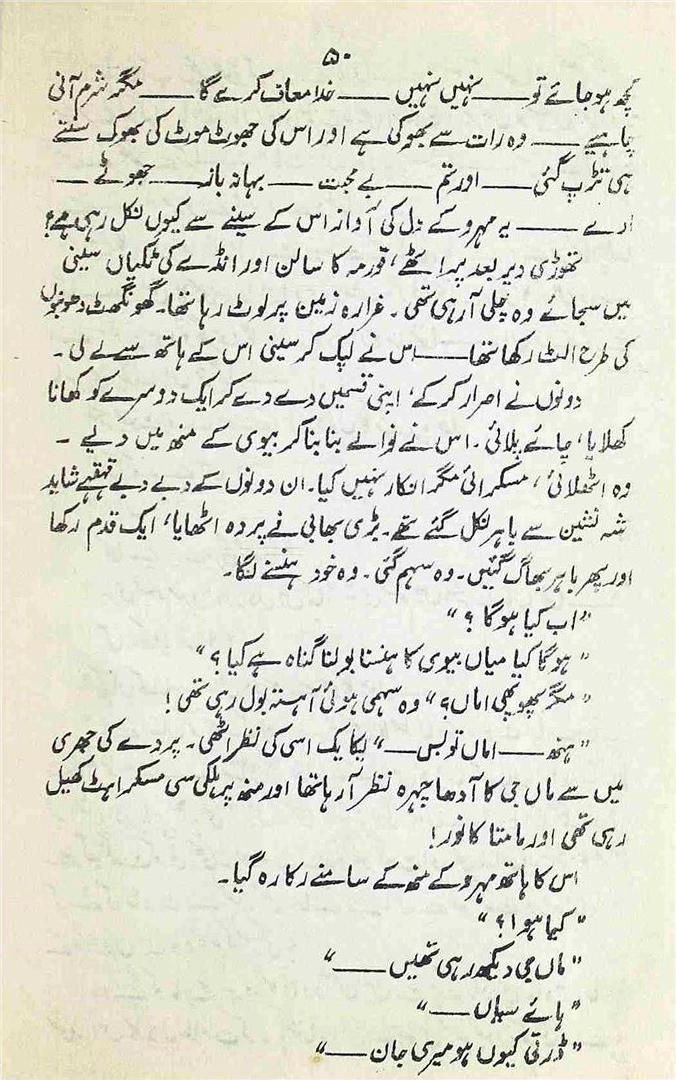 ۵۰
کچھ ہو جائے تو ـــــ نہیں نہیں ـــــ خدا معاف کرے گا ـــــ مگر شرم آنی
چاہیے ـــــ وہ رات سے بھوکی ہے اور اس کی جھوٹ موٹ کی بھوک سنتے
ہی تڑپ گئی ـــــ اور تم ـــــ بے محبت ـــــ بہانہ باز ـــــ جھوٹے ـــــ
ارے ـــــ یہ مہرو کے دل کی آواز اس کے سینے سے کیوں نکل رہی ہے؟
تھوڑی دیر بعد پراٹھے، قورمہ کا سالن اور انڈے کی ٹکیاں سینی
میں سجائے وہ چلی آ رہی تھی۔ غرارہ زمین پر لوٹ رہا تھا۔ گھونگھٹ دھوبنوں
کی طرح الٹا رکھا تھا ـــــ اس نے لپک کر سینی اس کے ہاتھ سے لے لی۔
دونوں نے اصرار کر کے، اپنی قسمیں دے دے کر ایک دوسرے کو کھانا
کھلایا، چائے پلائی۔ اس نے نوالے بنا بنا کر بیوی کے منھ میں دیے۔
وہ اٹھلائی، مسکرائی مگر انکار نہیں کیا۔ ان دونوں کے دبے دبے قہقہے شاید
شہ نشین سے باہر نکل گئے تھے۔ بڑی بھابی نے پردہ اٹھایا، ایک قدم رکھا
اور پھر باہر بھاگ گئیں۔ وہ سہم گئی۔ وہ خود ہنسنے لگا۔
"اب کیا ہو گا؟"
"ہو گا کیا میاں بیوی کا ہنسنا بولنا گناہ ہے کیا؟"
"مگر پھوپھی اماں؟" وہ سہمی ہوئی آہستہ بول رہی تھی!
"ہنھ ـــــ اماں تو بس ـــــ" یکایک اسی کی نظر اٹھی۔ پردے کی جھری
میں سے ماں جی کا آدھا چہرہ نظر آ رہا تھا اور منھ پر ہلکی سی مسکراہٹ کھیل
رہی تھی اور مامتا کا نور!
اس کا ہاتھ مہرو کے منھ کے سامنے رکا رہ گیا۔
"کیا ہوا؟"
"ماں جی دیکھ رہی تھیں ـــــ"
"ہائے ـــــ"
"ڈرتی کیوں ہو میری جان ـــــ"